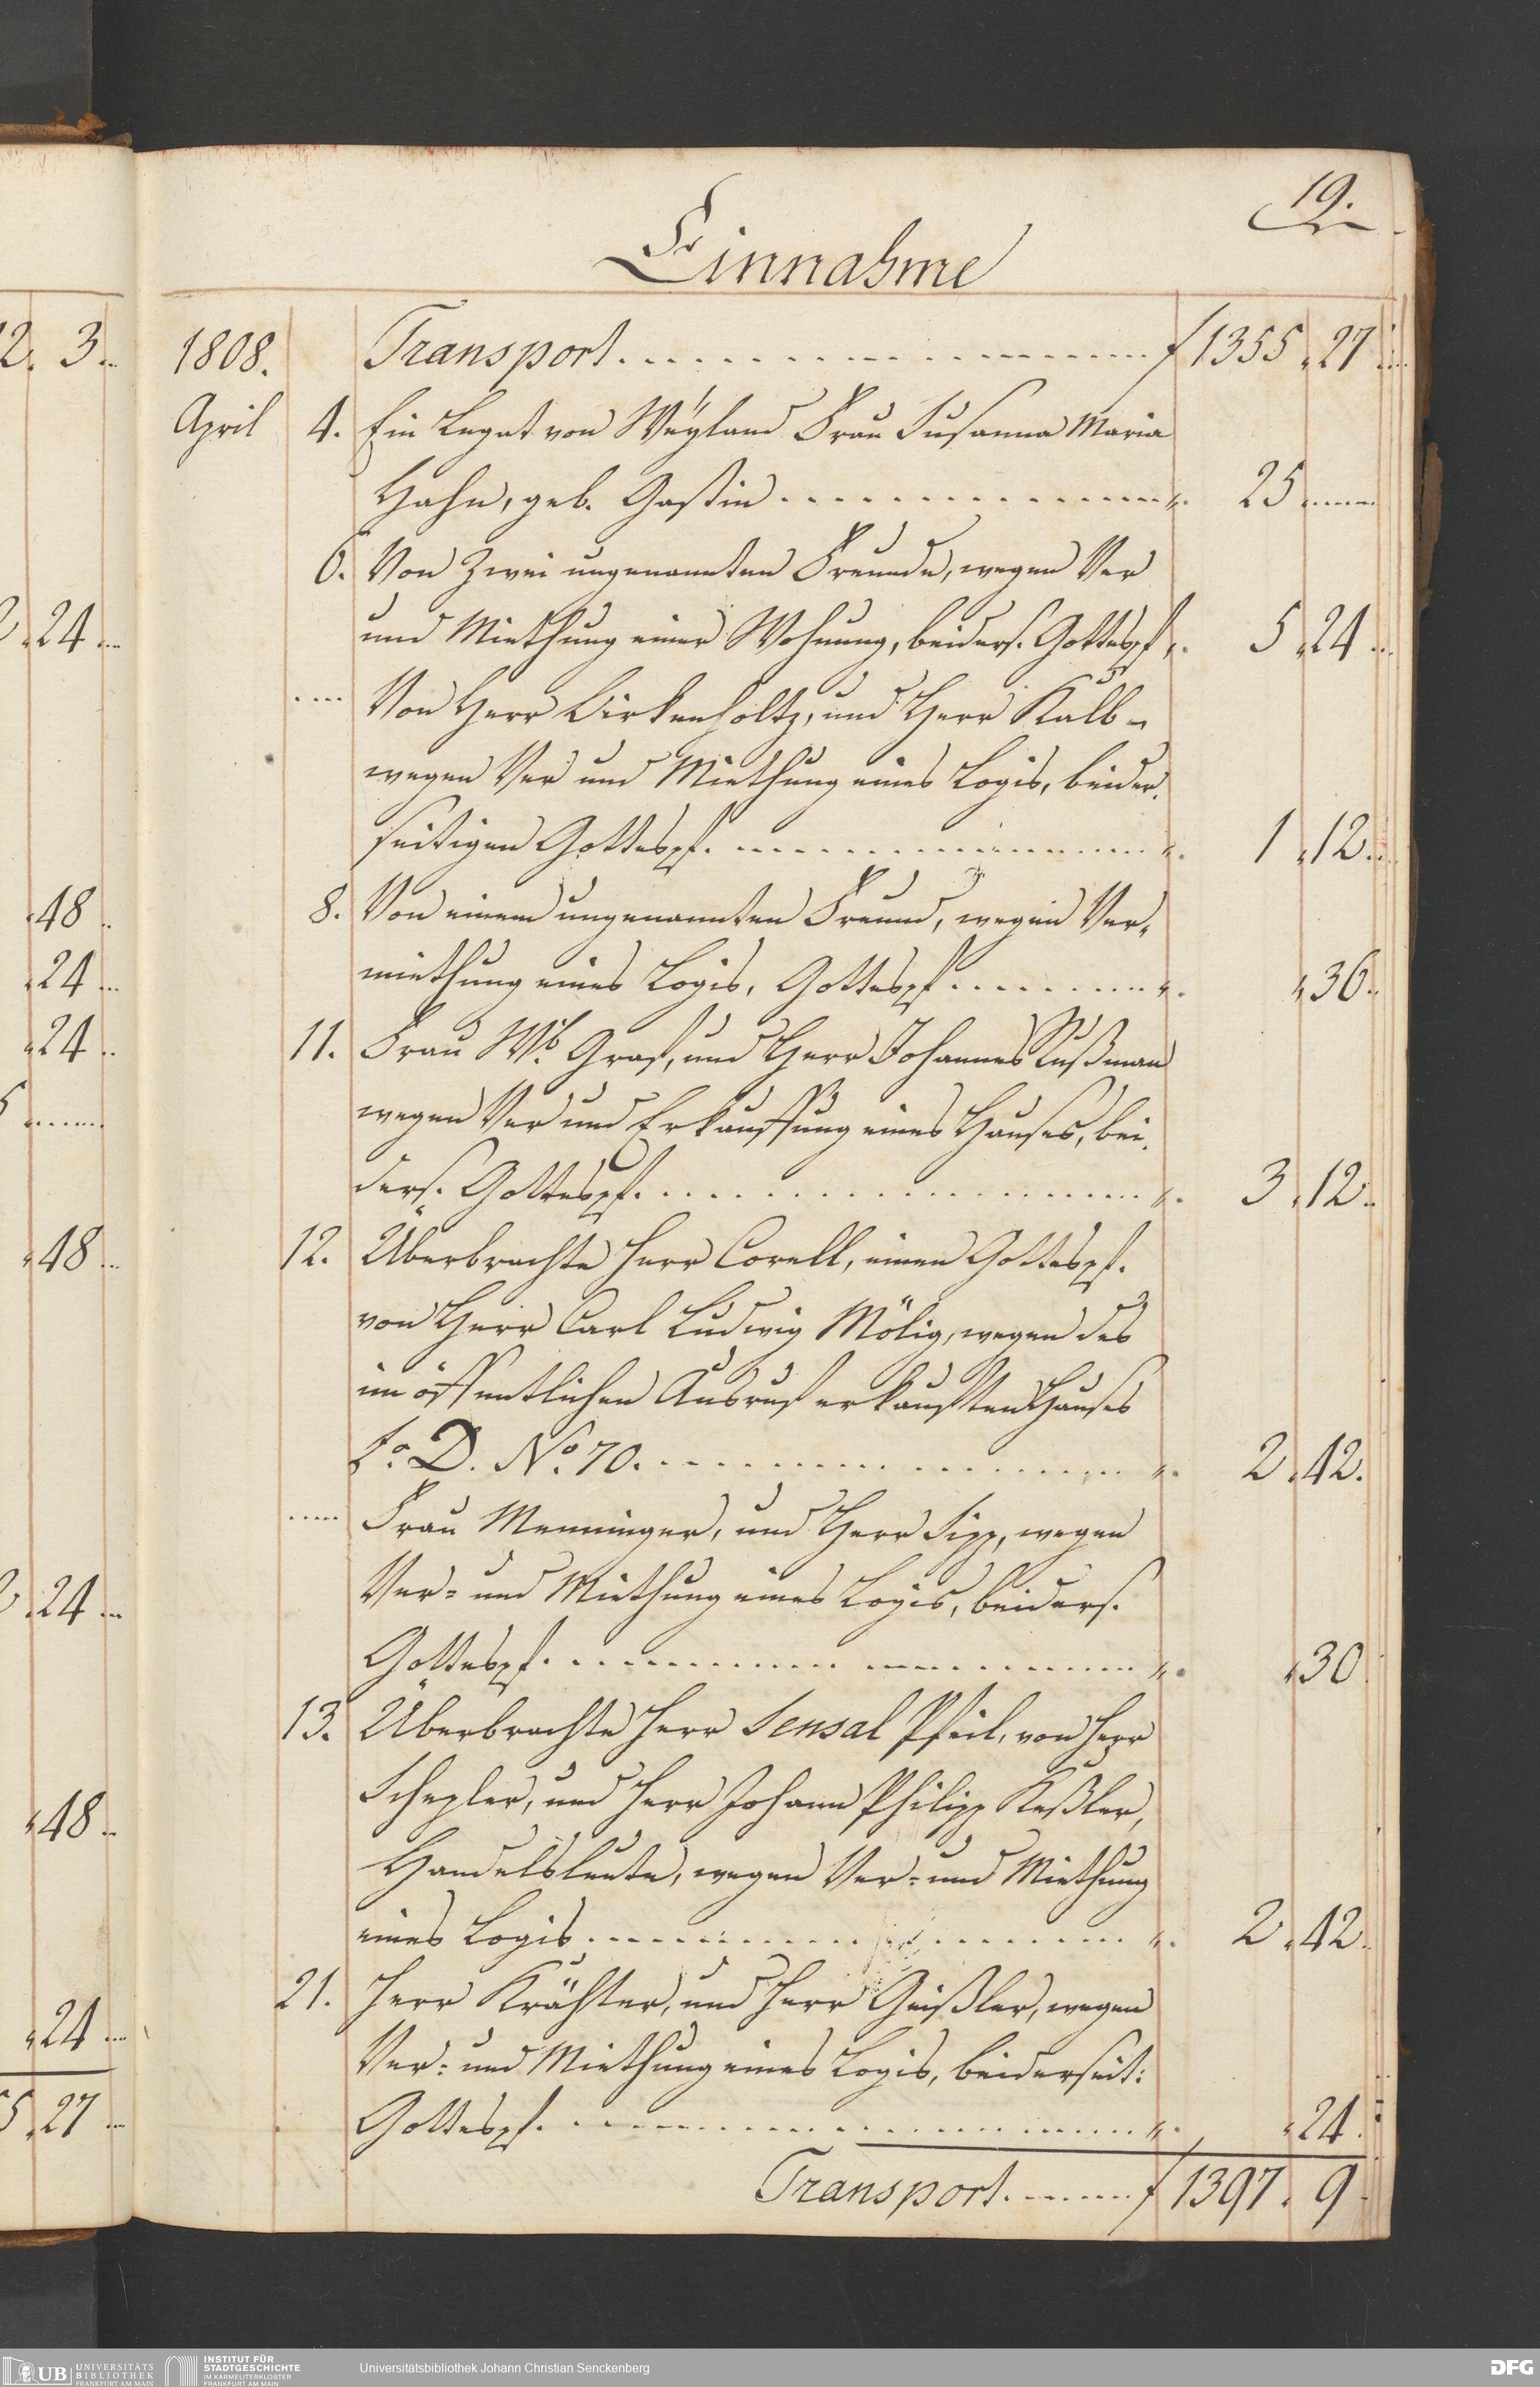 19.
Einnahme
1808. Transport. f 1355 „ 27
April 4. Ein Legat von Weÿland Frau Susanna Maria
Hahn, geb. Gastin „. 25
6. Von Zwei ungenannten Freunde, wegen Ver
und Miethung einer Wohnung, beiders. Gottespf „. 5 „ 24
Von Herr Birkenholtz, und Herr Kalb
wegen Ver und Miethung eines Logis, beider
seitigen Gottespf. „. 1 „ 12
8. Von einem ungenannten Freund, wegen Ver„
miethung eines Logis, Gottespf „. „ 36
11. Frau Wb. Graf, und Herr Johannes Rußman
wegen Ver und Erkauffung eines Hauses, bei
ders. Gottespf. „. 3 „ 12
12. Überbrachte Herr Corell, einen Gottespf.
von Herr Carl Ludwig Mölig, wegen des
im öffentlichen Ausruf erkauften Hauses
D. No. 70. „. 2 „ 42.
Frau Menninger, und Herr Sipp, wegen
Ver= und Miethung eines Logis, beiders.
Gottespf. „. „ 30
13. Überbrachte Herr Sensal Pfeil, von Herr
Schepler, und Herr Johann Philipp Keßler,
Handelsleute, wegen Ver= und Miethung
eines Logis „. 2 „ 42
21. Herr Krähter, und Herr Geißler, wegen
Ver= und Miethung eines Logis, beiderseit:
Gottespf. „. „ 24.
Transport. f 1397 „ 9
2. 3
24
48
24
24
5
48
24
48
24
5 „ 27
UB UNIVERSITÄTS
BIBLIOTHEK
FRANKFURT AM MAIN
INSTITUT FÜR
STADTGESCHICHTE
IM KARMELITERKLOSTER
FRANKFURT AM MAIN
Universitätsbibliothek Johann Christian Senckenberg
DFG